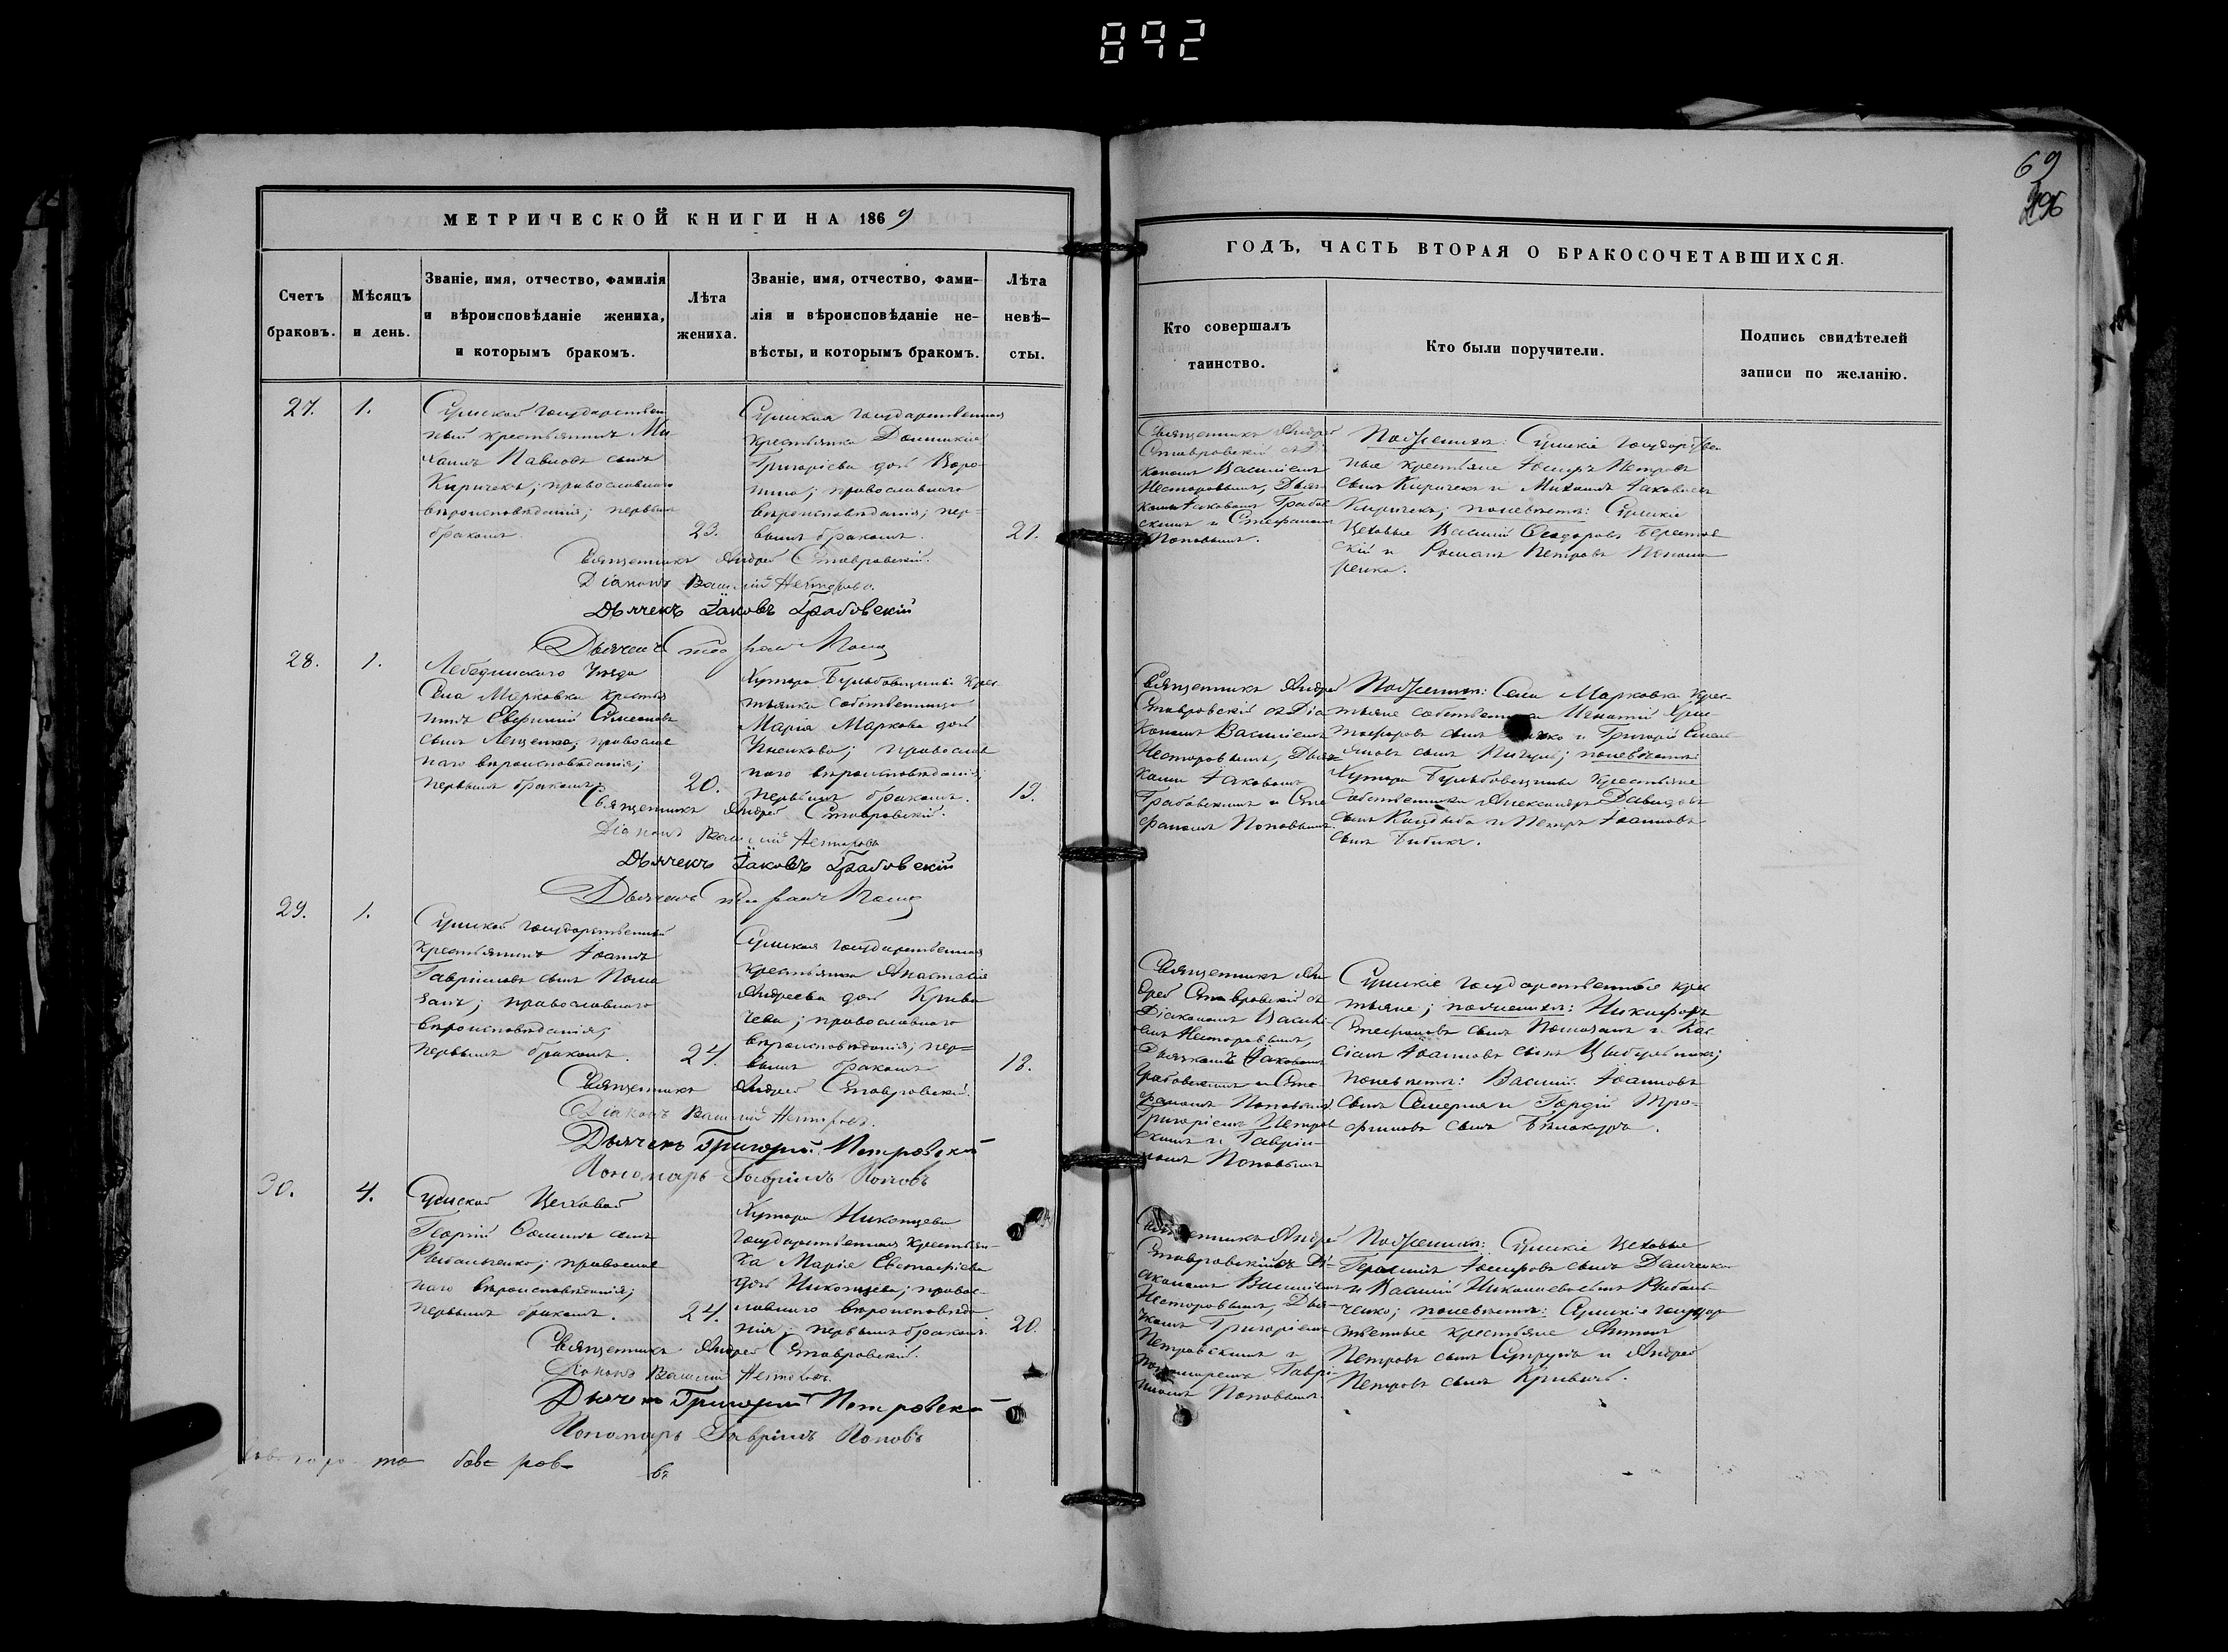 892
69
МЕТРИЧЕСКОЙ КНИГИ НА 1869
ГОДЪ, ЧАСТЬ ВТОРАЯ О БРАКОСОЧЕТАВШИХСЯ.
Счетъ
браковъ.
Мѣсяцъ
и день.
Званіе, имя, отчество, фамилія
и вѣроисповѣданіе жениха,
и которымъ бракомъ.
Лѣта
жениха.
Званіе, имя, отчество, фами-
лія и вѣроисповѣданіе не-
вѣсты, и которымъ бракомъ.
Лѣта
невѣ-
сты.
Кто совершалъ
таинство.
Кто были поручители.
Подпись свидѣтелей
записи по желанію.
27.
1.
Сумской государствен
ный крестьянинъ Ми-
хаилъ Павловъ сынъ
Киричекъ; православнаго
вѣроисповѣданія; первымъ
бракомъ.
23.
Сумская государственная
крестьянка Домникія
Григорієва дочь
православнаго
вѣроисповѣданія; пер-
вымъ бракомъ.
21.
Священникъ Андрей
Ставровскій съ Діа
кономъ Василіемъ
Несторовымъ, Дьяч
комъ Іаковомъ Грабов
скимъ и Стефаномъ
Поповымъ.
По женихѣ: Сумскіе государствен
ные крестьяне Іосифъ Петровъ
сынъ Киричекъ и Михаилъ Іаковлевъ
Киричекъ; по невѣстѣ: Сумскіе
Цеховые Василій Ѳеодоровъ
и Романъ Петровъ
Священникъ Андрей Ставровскій.
Діаконъ Василій Несторовъ.
Дьячекъ Іаковъ Грабовскій
Дьячекъ Стефанъ Попов
28.
1.
Лебединскаго Уѣзда
Села Марковки крестья
нинъ Евфимій Симеоновъ
сынъ Лещенко; православ
наго вѣроисповѣданія;
первымъ бракомъ.
20.
Хутора крес
тьянка собственница
Марія Маркова дочь
православ
наго вѣроисповѣданія;
первымъ бракомъ.
19.
Священникъ Андрей
Ставровскій съ Діа
кономъ Василіемъ
Несторовымъ, Дьяч
ками Іаковомъ
Грабовскимъ и Сте
фаномъ Поповымъ
По женихѣ: Села Марковки крес
тьяне собственники Игнатій Хрис
тофоровъ сынъ и Григорій
сынъ по невѣстѣ:
Хутора крестьяне
собственники Александръ Давидовъ
сынъ и Петръ Іоанновъ
сынъ Бибикъ.
Священникъ Андрей Ставровскій.
Діаконъ Василій Несторовъ
Дьячекъ Іаковъ Грабовскій
Дьячекъ Стефанъ Попов
29.
1.
Сумской государственный
крестьянинъ Іоаннъ
Гавріиловъ сынъ Пома
занъ; православнаго
вѣроисповѣданія;
первымъ бракомъ.
24.
Сумская государственная
крестьянка Анастасія
Андреева дочь Криви
чева; православнаго
вѣроисповѣданія; пер=
вымъ бракомъ
18.
Священникъ Ан
дрей Ставровскій съ
Діакономъ Василі
емъ Несторовымъ,
Дьячками Іаковомъ
Грабовскимъ и Сте-
фаномъ Поповымъ
Григоріемъ Петров
скимъ и Гавріи-
ломъ Поповымъ
Сумскіе государственные крес
тьяне; по женихѣ: Никифоръ
Стефановъ сынъ Помазанъ и Кас
сіанъ Іоанновъ сынъ
по невѣстѣ: Василій Іоанновъ
сынъ и Гордій Тро-
фимовъ сынъ Бѣлокуръ.
Священникъ Андрей Ставровскій.
Діаконъ Василій Несторовъ.
Дьячекъ Григорій Петровскій
Пономарь Гавріилъ Поповъ
30.
4.
Сумской Цеховой
Георгій Ѳоминъ сынъ
Рыбальченко; православ
наго вѣроисповѣданія;
первымъ бракомъ.
24.
Хутора Никонцева
государственная крестьян-
ка Марія Евстафіева
дочь Никонцева; правос-
лавнаго вѣроисповѣда
нія; первымъ бракомъ.
20.
Священникъ Андрей
Ставровскій съ Ді-
акономъ Василіемъ
Несторовымъ, Дья-
чкомъ Григоріемъ
Петровскимъ и
пономаремъ Гаврі-
иломъ Поповымъ.
По женихѣ: Сумскіе Цеховые
Герасимъ Іосифовъ сынъ Данченко
и Василій Николаевъ сынъ Рыбаль-
ченко; по невѣстѣ: Сумскіе государ
ственные крестьяне Антонъ
Петровъ сынъ Супрунъ и Андрей
Петровъ сынъ Кривичъ.
Священникъ Андрей Ставровскій.
Діаконъ Василій Несторовъ.
Дьячекъ Григорій Петровскій
Пономарь Гавріилъ Поповъ